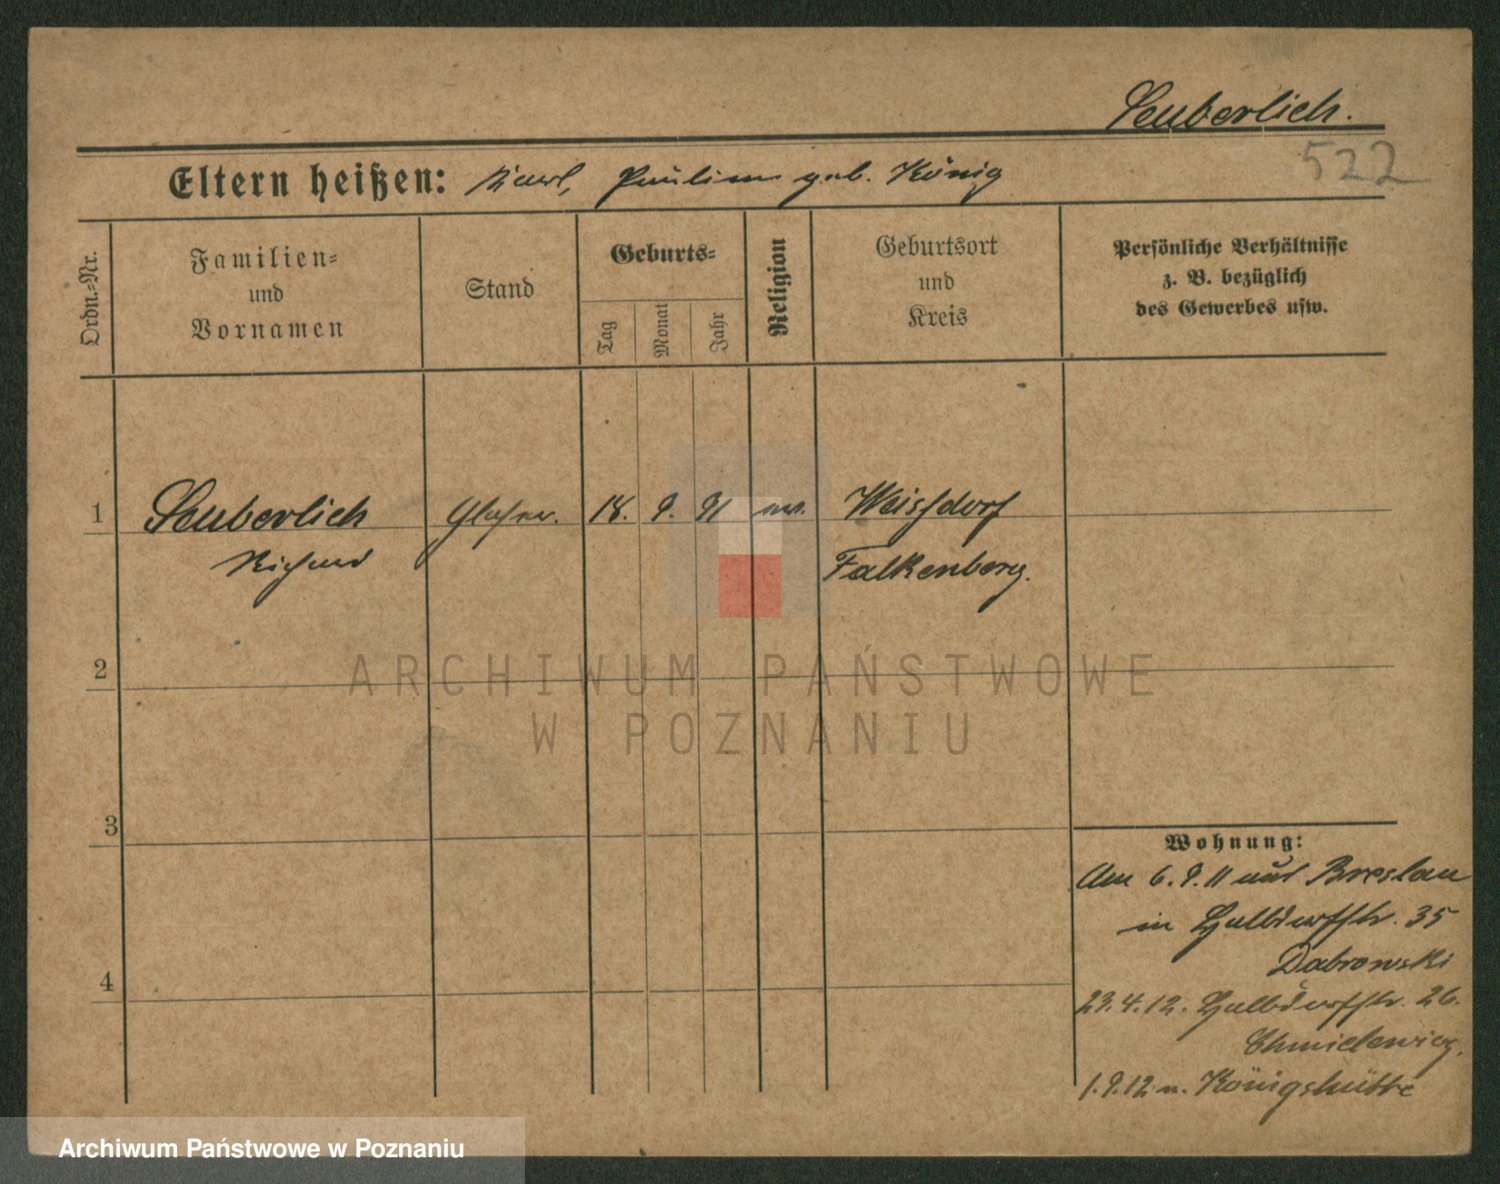 Seuberlich.
522
Eltern heißen: Karl, Pauline geb. König
Ordn.-Nr.
Familien-
und
Vornamen
Stand
Geburts-
Tag
Monat
Jahr
Religion
Geburtsort
und
Kreis
Persönliche Verhältnisse
z. B. bezüglich
des Gewerbes usw.
1 Seuberlich Glaser. 18. 9. 91 ev. Weissdorf
Richard Falkenberg.
2
3
4
Wohnung:
Am 6.9.11 aus Breslau
in Halbdorfstr. 35
Dabrowski
23.4.12. Halbdorfstr. 26.
Chmielewicz.
1.9.12. n. Königshütte
ARCHIWUM PAŃSTWOWE
W POZNANIU
Archiwum Państwowe w Poznaniu